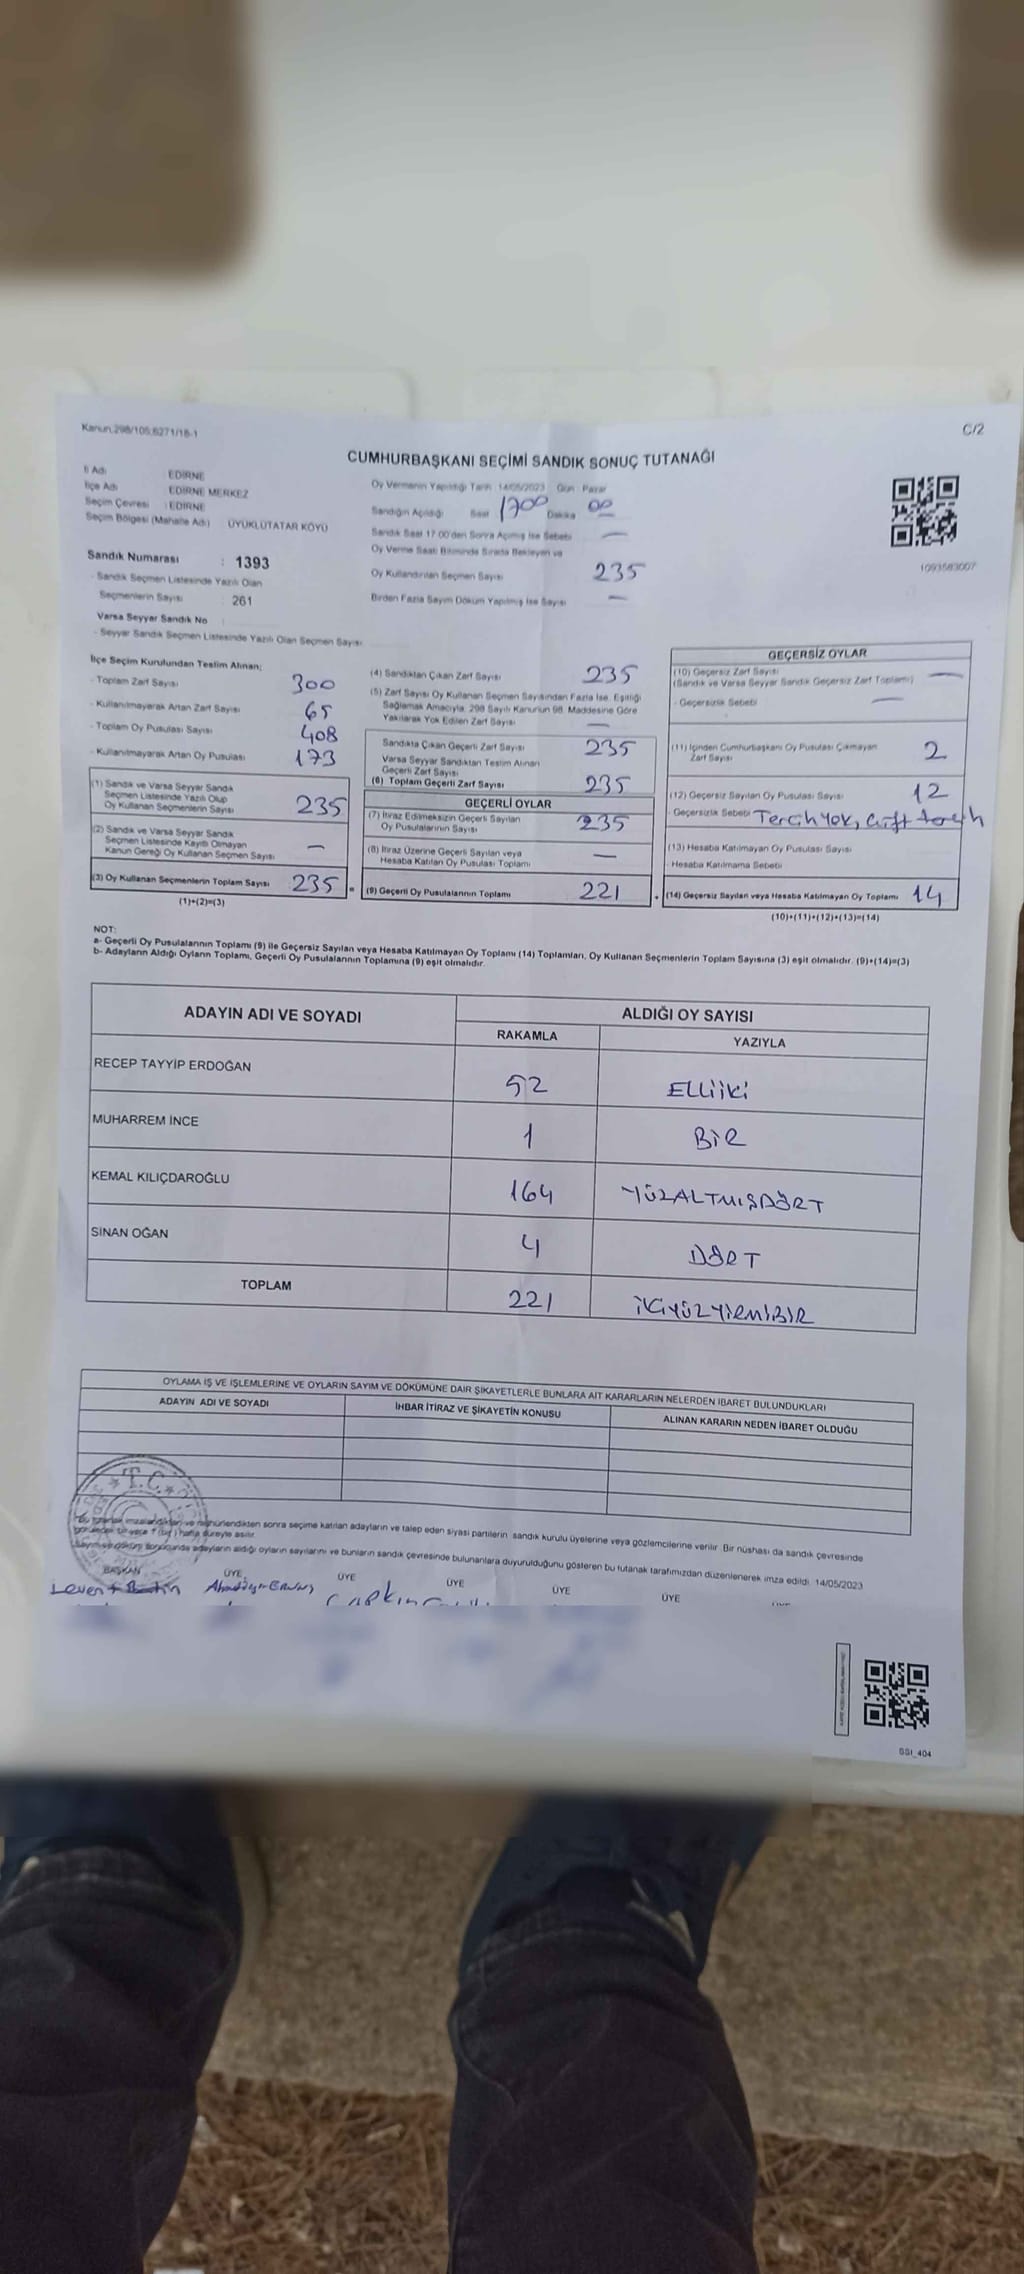 Kanun:298/105;6271/16-1
C/2
CUMHURBAŞKANI SEÇİMİ SANDIK SONUÇ TUTANAĞI
İl Adı : EDİRNE
İlçe Adı : EDİRNE MERKEZ
Seçim Çevresi : EDİRNE
Seçim Bölgesi (Mahalle Adı) ÜYÜKLÜTATAR KÖYÜ
Oy Vermenin Yapıldığı Tarih :14/05/2023 Gün : Pazar
Sandığın Açıldığı Saat 1700 Dakika 00
Sandık Saat 17.00'den Sonra Açılmış İse Sebebi —
Oy Verme Saati Bitiminde Sırada Bekleyen ve
Oy Kullandırılan Seçmen Sayısı 235
Birden Fazla Sayım Döküm Yapılmış İse Sayısı —
1093583007
Sandık Numarası : 1393
- Sandık Seçmen Listesinde Yazılı Olan
Seçmenlerin Sayısı : 261
Varsa Seyyar Sandık No
- Seyyar Sandık Seçmen Listesinde Yazılı Olan Seçmen Sayısı
İlçe Seçim Kurulundan Teslim Alınan;
- Toplam Zarf Sayısı 300
- Kullanılmayarak Artan Zarf Sayısı 65
- Toplam Oy Pusulası Sayısı 408
- Kullanılmayarak Artan Oy Pusulası 173
(1) Sandık ve Varsa Seyyar Sandık
Seçmen Listesinde Yazılı Olup
Oy Kullanan Seçmenlerin Sayısı 235
(2) Sandık ve Varsa Seyyar Sandık
Seçmen Listesinde Kayıtlı Olmayan
Kanun Gereği Oy Kullanan Seçmen Sayısı —
(3) Oy Kullanan Seçmenlerin Toplam Sayısı 235 =
(1)+(2)=(3)
(4) Sandıktan Çıkan Zarf Sayısı 235
(5) Zarf Sayısı Oy Kullanan Seçmen Sayısından Fazla İse, Eşitliği
Sağlamak Amacıyla, 298 Sayılı Kanunun 98. Maddesine Göre
Yakılarak Yok Edilen Zarf Sayısı —
Sandıkta Çıkan Geçerli Zarf Sayısı 235
Varsa Seyyar Sandıktan Teslim Alınan
Geçerli Zarf Sayısı
(6) Toplam Geçerli Zarf Sayısı 235
GEÇERLİ OYLAR
(7) İtiraz Edilmeksizin Geçerli Sayılan
Oy Pusulalarının Sayısı 235
(8) İtiraz Üzerine Geçerli Sayılan veya
Hesaba Katılan Oy Pusulası Toplamı —
(9) Geçerli Oy Pusulalarının Toplamı 221 +
GEÇERSİZ OYLAR
(10) Geçersiz Zarf Sayısı —
(Sandık ve Varsa Seyyar Sandık Geçersiz Zarf Toplamı)
- Geçersizlik Sebebi —
(11) İçinden Cumhurbaşkanı Oy Pusulası Çıkmayan
Zarf Sayısı 2
(12) Geçersiz Sayılan Oy Pusulası Sayısı 12
- Geçersizlik Sebebi Tercih Yok, Çift tercih
(13) Hesaba Katılmayan Oy Pusulası Sayısı
- Hesaba Katılmama Sebebi
(14) Geçersiz Sayılan veya Hesaba Katılmayan Oy Toplamı 14
(10)+(11)+(12)+(13)=(14)
NOT:
a- Geçerli Oy Pusulalarının Toplamı (9) ile Geçersiz Sayılan veya Hesaba Katılmayan Oy Toplamı (14) Toplamları, Oy Kullanan Seçmenlerin Toplam Sayısına (3) eşit olmalıdır. (9)+(14)=(3)
b- Adayların Aldığı Oyların Toplamı, Geçerli Oy Pusulalarının Toplamına (9) eşit olmalıdır.
ADAYIN ADI VE SOYADI
ALDIĞI OY SAYISI
RAKAMLA YAZIYLA
RECEP TAYYİP ERDOĞAN 52 ELLİİKİ
MUHARREM İNCE 1 BİR
KEMAL KILIÇDAROĞLU 164 YÜZALTMIŞDÖRT
SİNAN OĞAN 4 DÖRT
TOPLAM 221 İKİYÜZYİRMİBİR
OYLAMA İŞ VE İŞLEMLERİNE VE OYLARIN SAYIM VE DÖKÜMÜNE DAİR ŞİKAYETLERLE BUNLARA AİT KARARLARIN NELERDEN İBARET BULUNDUKLARI
ADAYIN ADI VE SOYADI İHBAR İTİRAZ VE ŞİKAYETİN KONUSU ALINAN KARARIN NEDEN İBARET OLDUĞU
T.C.
Bu tutanak imzalandıktan ve mühürlendikten sonra seçime katılan adayların ve talep eden siyasi partilerin sandık kurulu üyelerine veya gözlemcilerine verilir. Bir nüshası da sandık çevresinde
görülebilen bir yere 1 (bir) hafta süreyle asılır.
Sayım ve döküm sonucunda adayların aldığı oyların sayılarını ve bunların sandık çevresinde bulunanlara duyurulduğunu gösteren bu tutanak tarafımızdan düzenlenerek imza edildi. 14/05/2023
BAŞKAN ÜYE ÜYE ÜYE ÜYE ÜYE
SSI_404